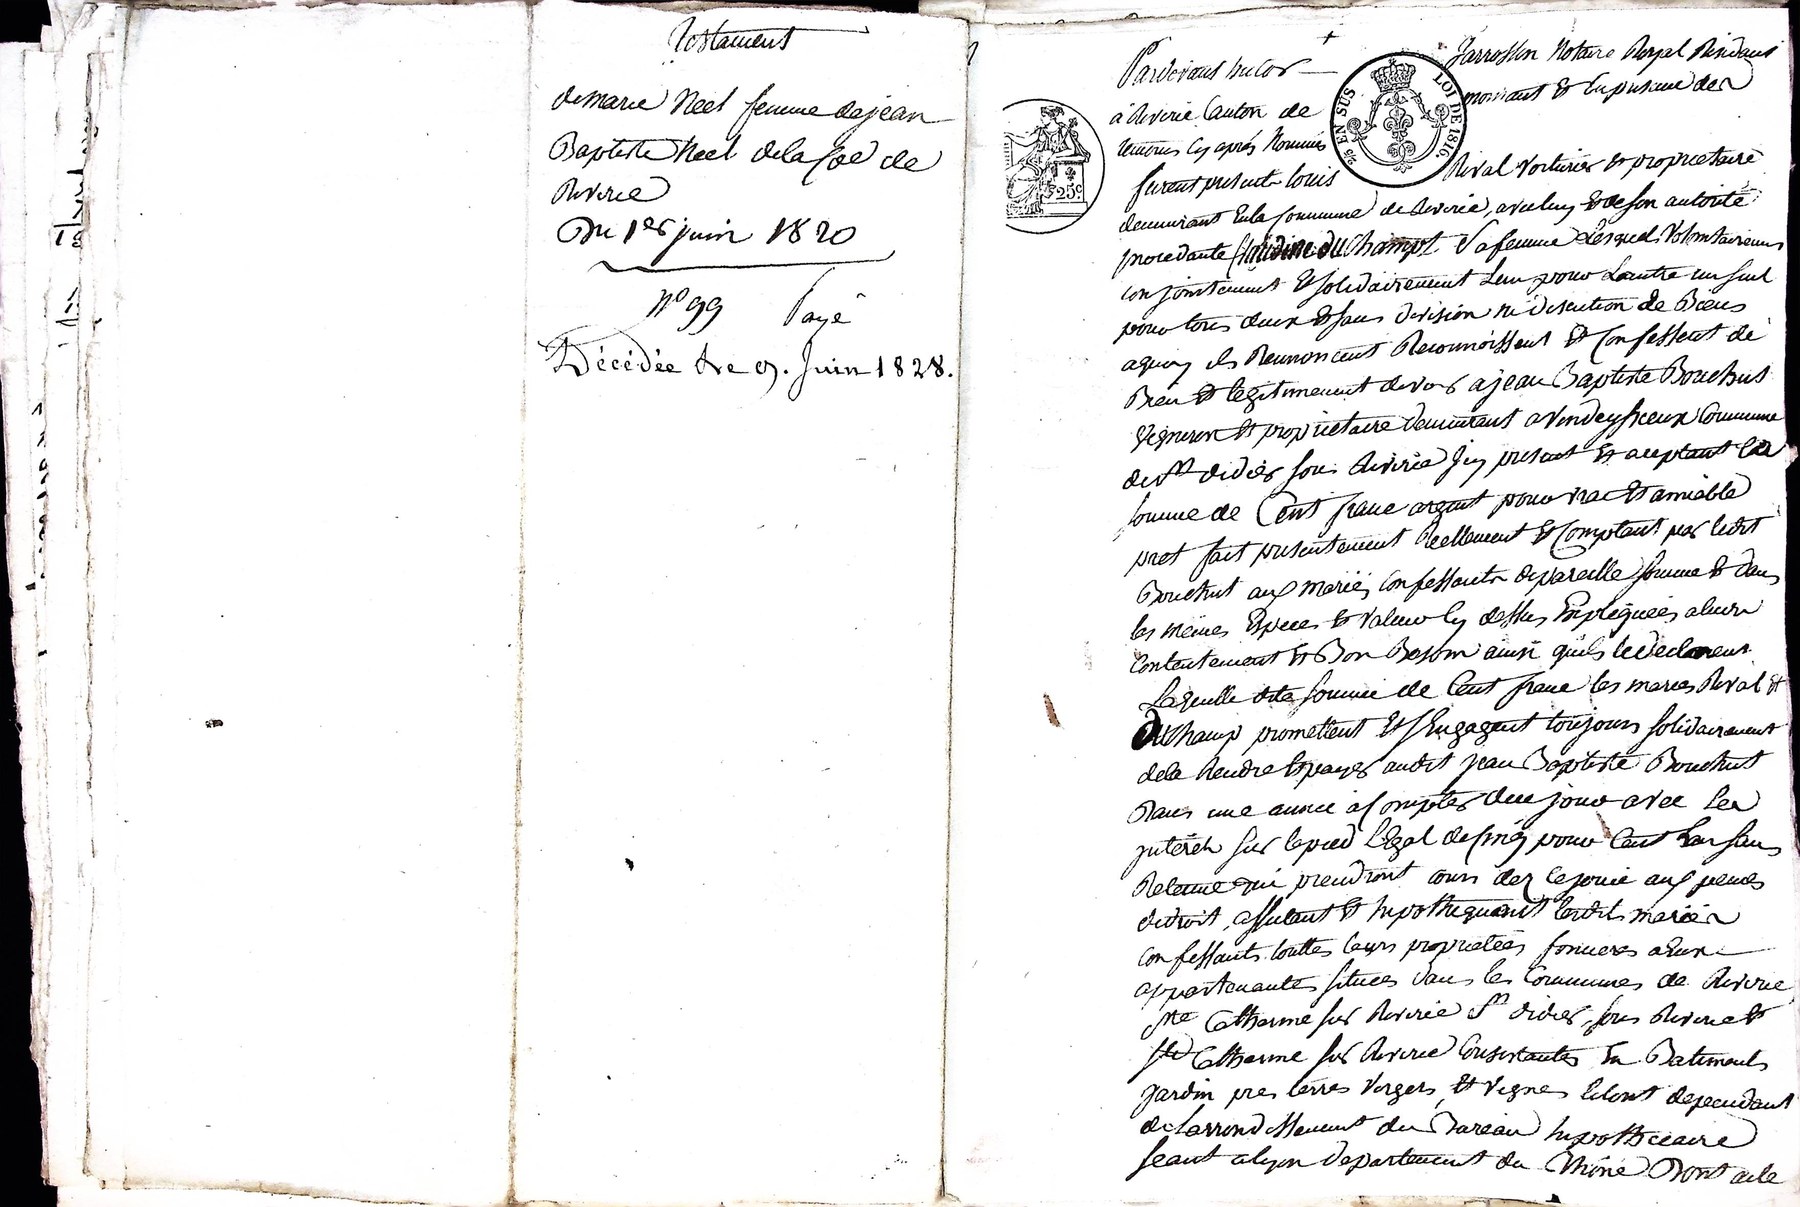 Testament
de marie Néel femme de jean
Baptiste Néel de la Coe de
Riverie
Du 1er juin 1820
No 99 Payé
Décédée Le 9. Juin 1828.
Pardevant Jarrosson Notaire Royal Résidant
à Riverie Canton de mornant Et En presence des
temoins Cy après Nommés
2/5 EN SUS
LOI DE 1816.
25c
furent present Louis Rival voiturier Et proprietaire
demeurant En la Commune de Riverie, avec luy Et de son autorité
procedante Claudine du Champt Sa femme Lesquels Volontairement
Conjointement Et solidairement L'un pour L'autre un seul
pour tous deux Et sans division ni discution de Biens
a quoy ils Renoncent Reconnoissent Et Confessent de
Bien Et legitimement devoir a jean Baptiste Bouchut
Vigneron Et proprietaire demeurant a Commune
de St didier sous Riverie Jcy present Et aceptant La
somme de Cent franc argent pour vrai Et amiable
pret fait presentement Reellement Et Comptant par ledit
Bouchut aux mariés Confessants de pareille somme Et dans
les mêmes Especes Et valeur Cy dessus Expliquées a leur
Contentement Et Bon Besoin ainsi qu'ils le declarent
Laquelle dite somme de Cent franc les mariés Rival Et
duChamp promettent Et s'Engagent toujours solidairement
de la Rendre Et payer audit jean Baptiste Bouchut
Dans une année à Compter de ce jour avec Les
jnterêts sur le pied Légal de cinq pour Cent L'an sans
Retenue qui prendront cours dez ce jour aux peines
de droit, affectant Et hypothequant lesdits mariés
Confessants touttes leurs proprietées foncieres a Eux
appartenantes situées dans les Communes de Riverie
Ste Catherine sur Riverie St didier sous Riverie Et
Ste Catherine sur Riverie Consistantes En Batiments
Jardin pres terres Vergers, Et Vignes le tout dependant
de L'arrondissement du Bureau hypothecaire
séant a Lyon departement du Rhône Dont acte